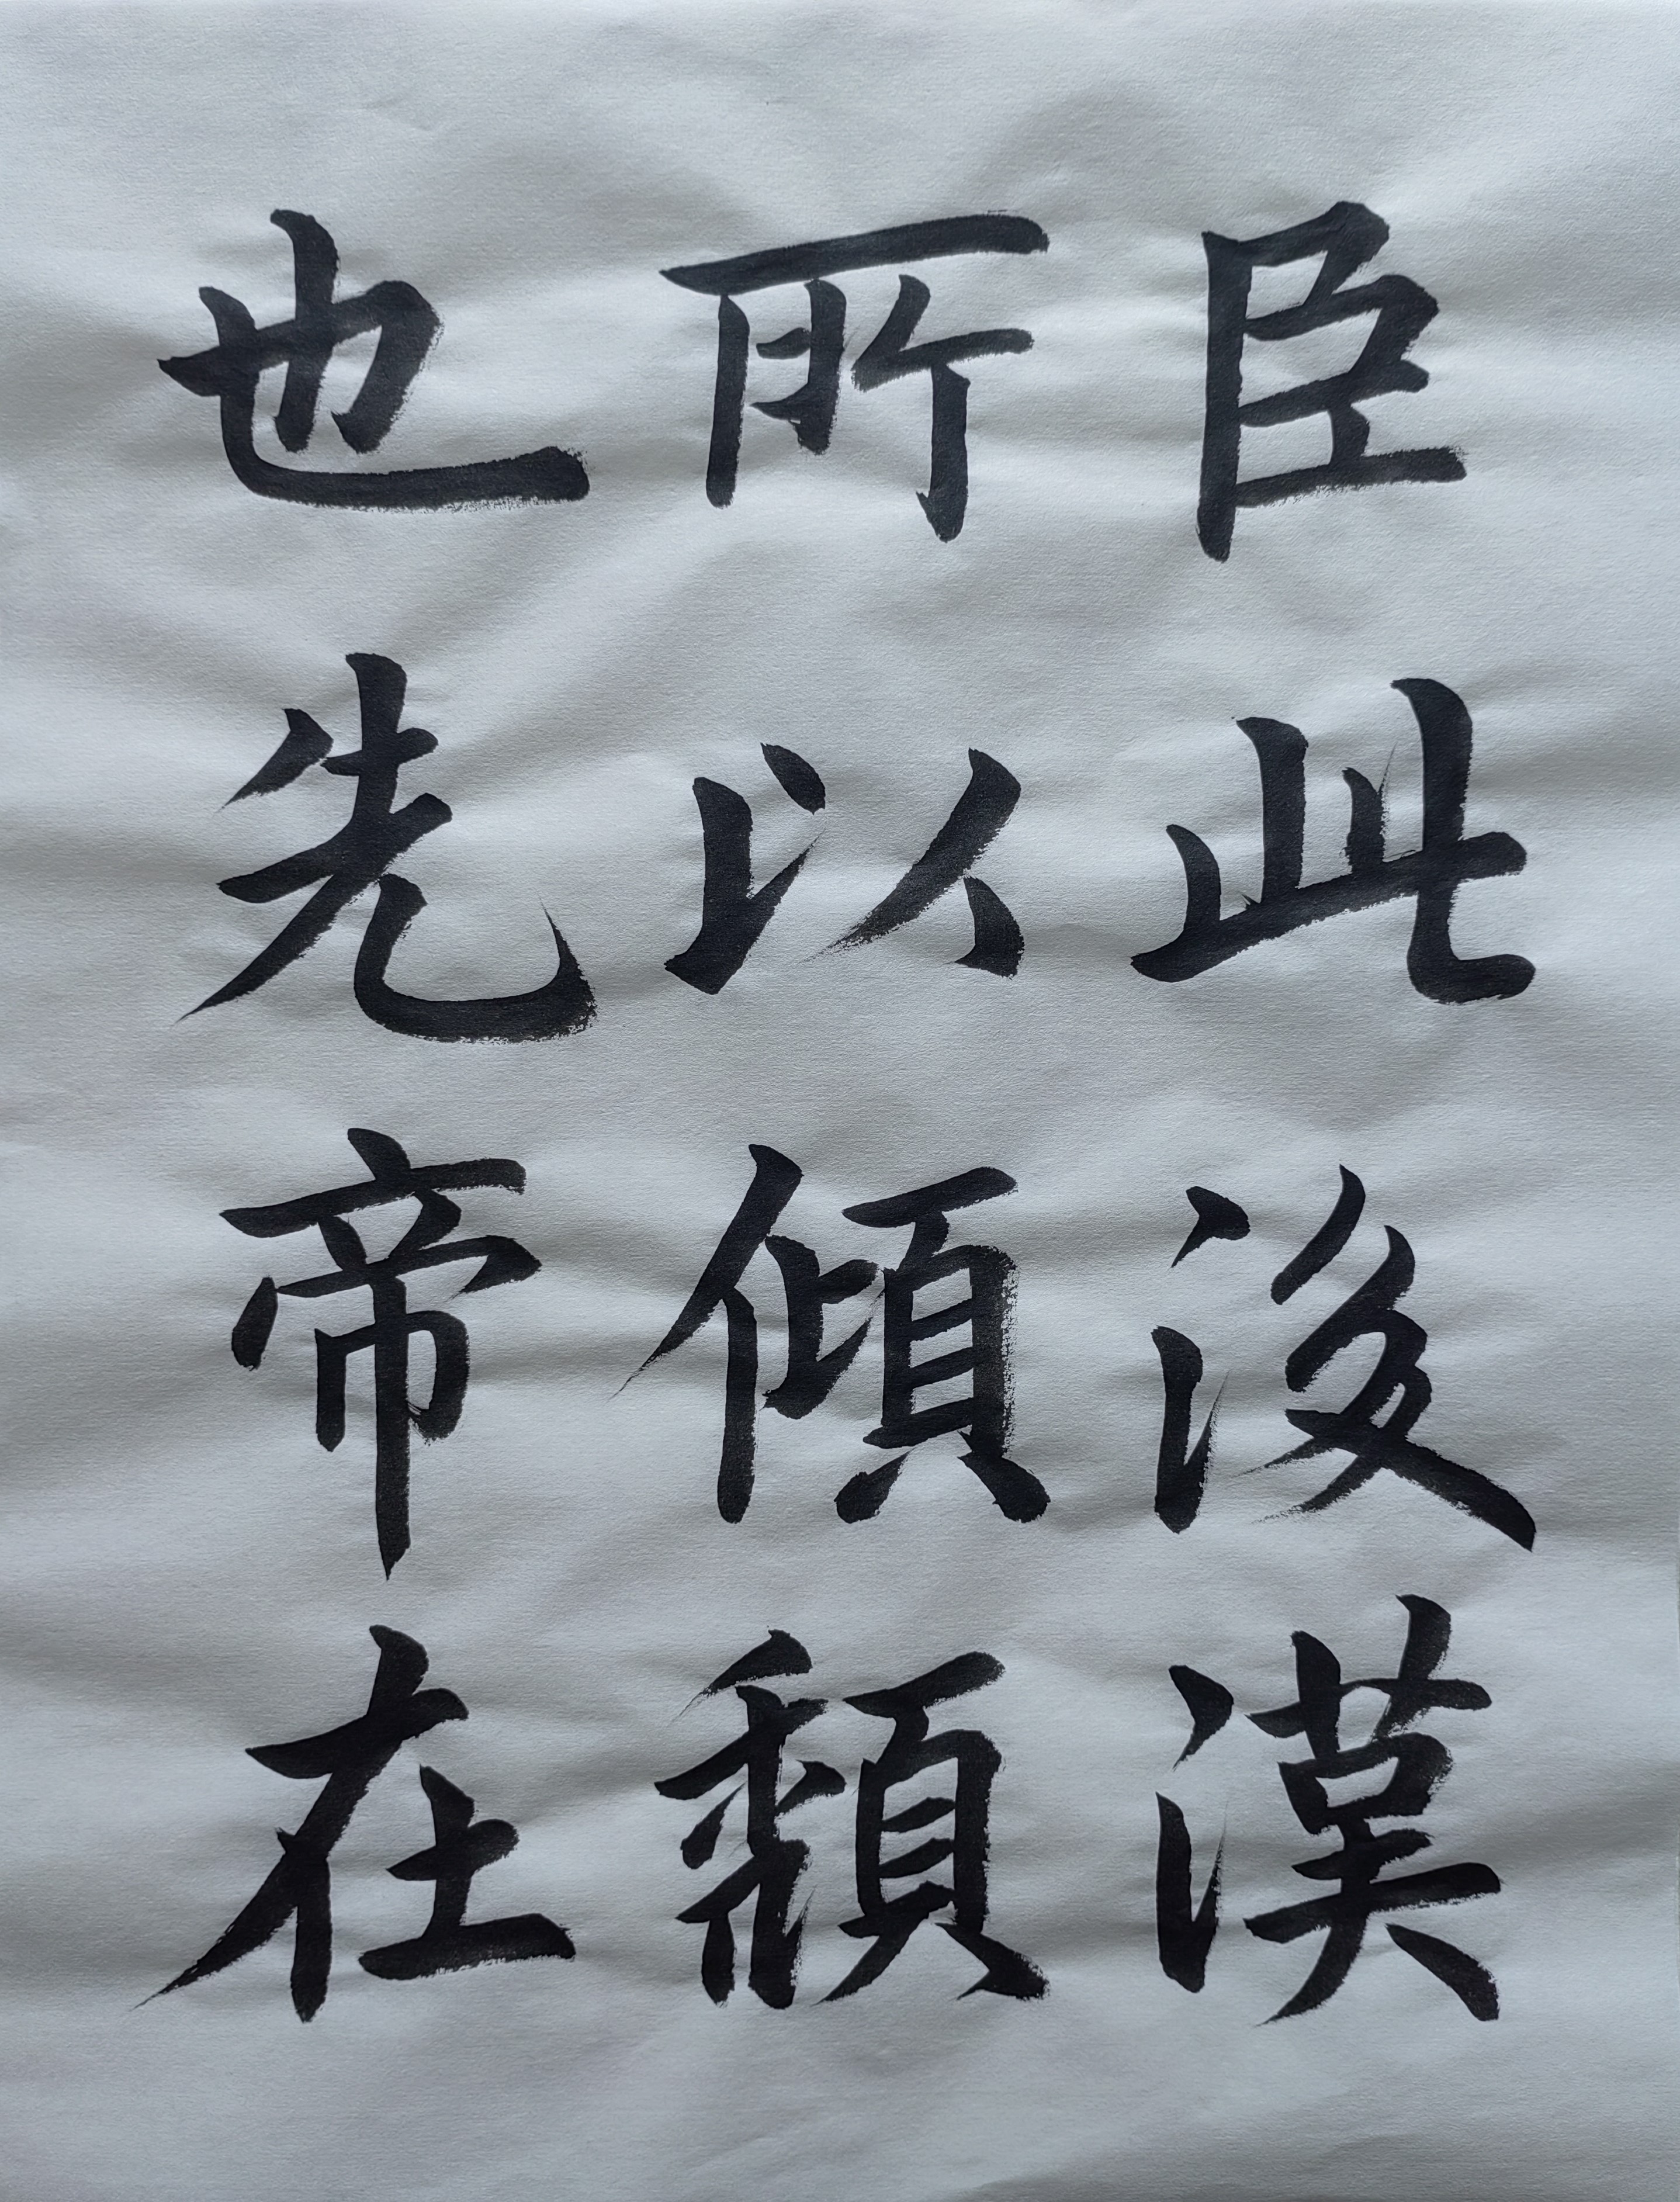 臣此後漢
所以傾頹
也先帝在